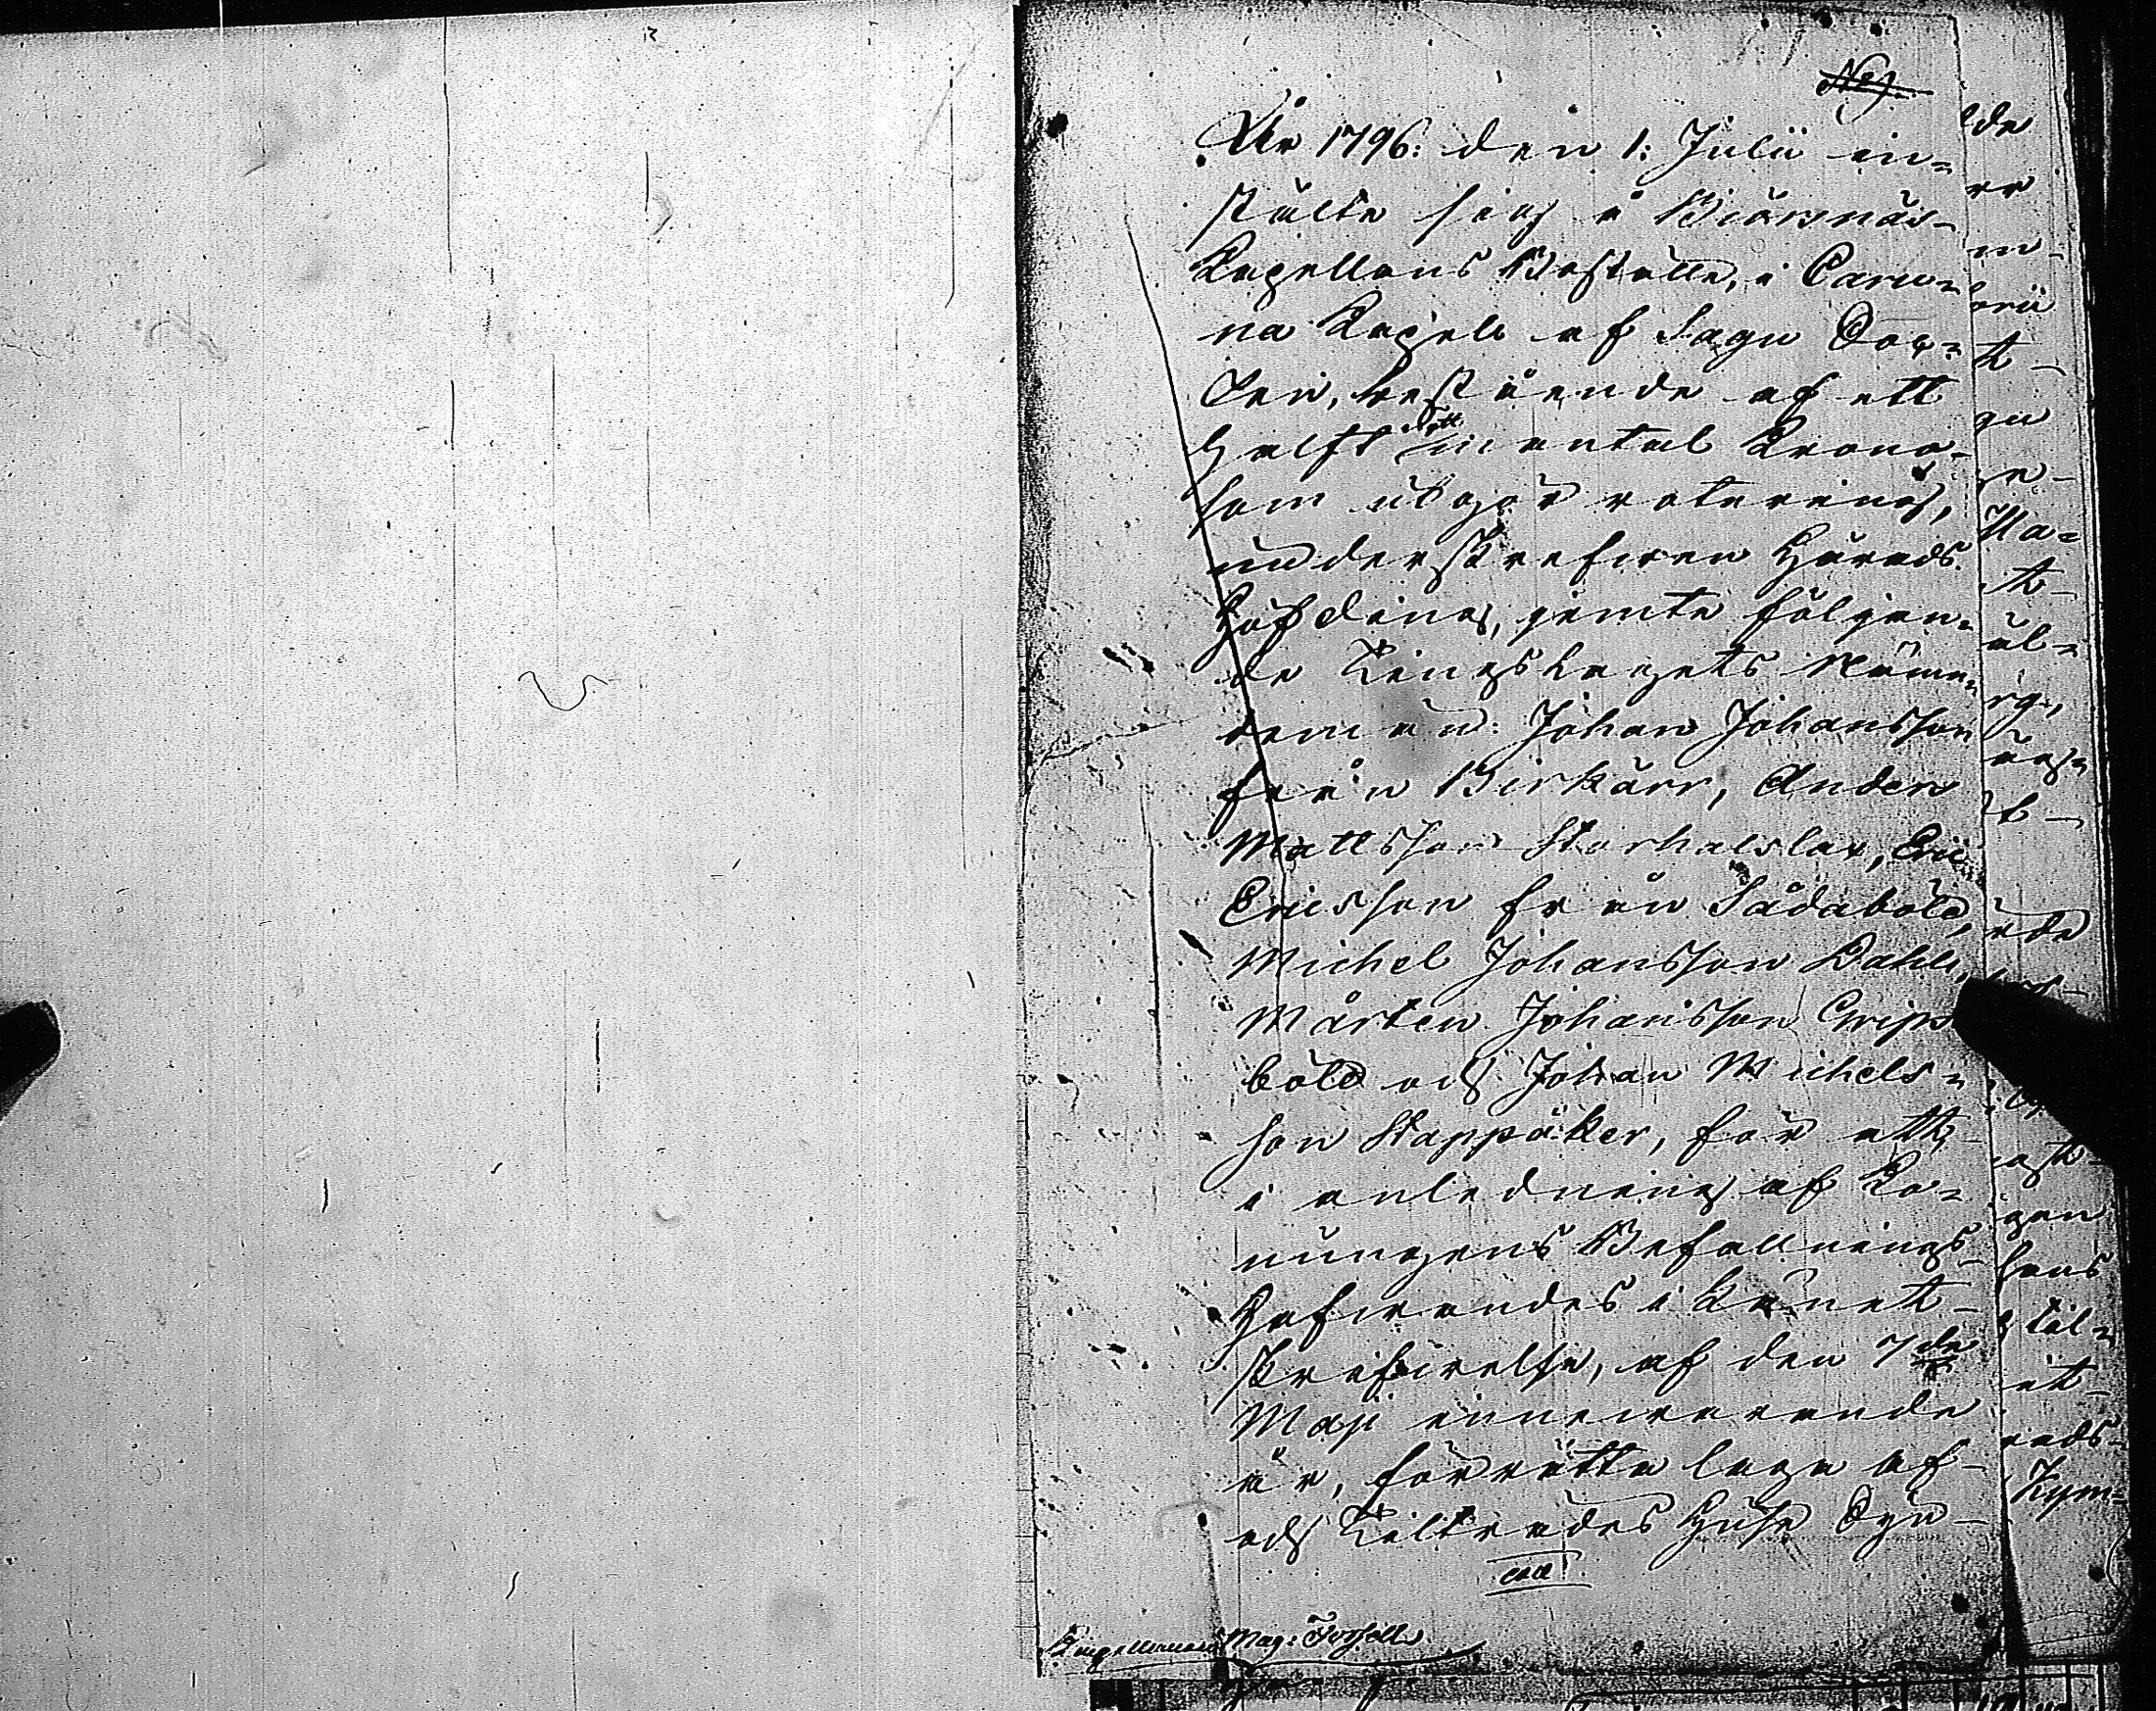 Åhr 1796: den 1: Julii in-
stälte sig å Biörsnäs-
Kapellans Boställe, i Caru-
na Kapell af Sagu Sock-
en, bestående af ett
Halft mantal Krono-
som utgör rotering,
underskrefwen Härads
Höfding, jemte följan-
de Tingslagets Nämn-
demän: Johan Johansson
från Birkärr, Anders
Mattsson Storhalslax, Eric
Ericsson från Sådaböle,
Michel Johansson Dahl,
Mårten Johansson Grips
böle och Johan Michels-
son Stappåker, för att
i anledning af Ko-
nungens Befallnings
Hafwandes i Länet-
skrifwelse, af den 7de
Maji innewarande
år, förrätta laga af-
och Tilträdes Huse Syn
emell:
Kapellanen Mag: Forssell